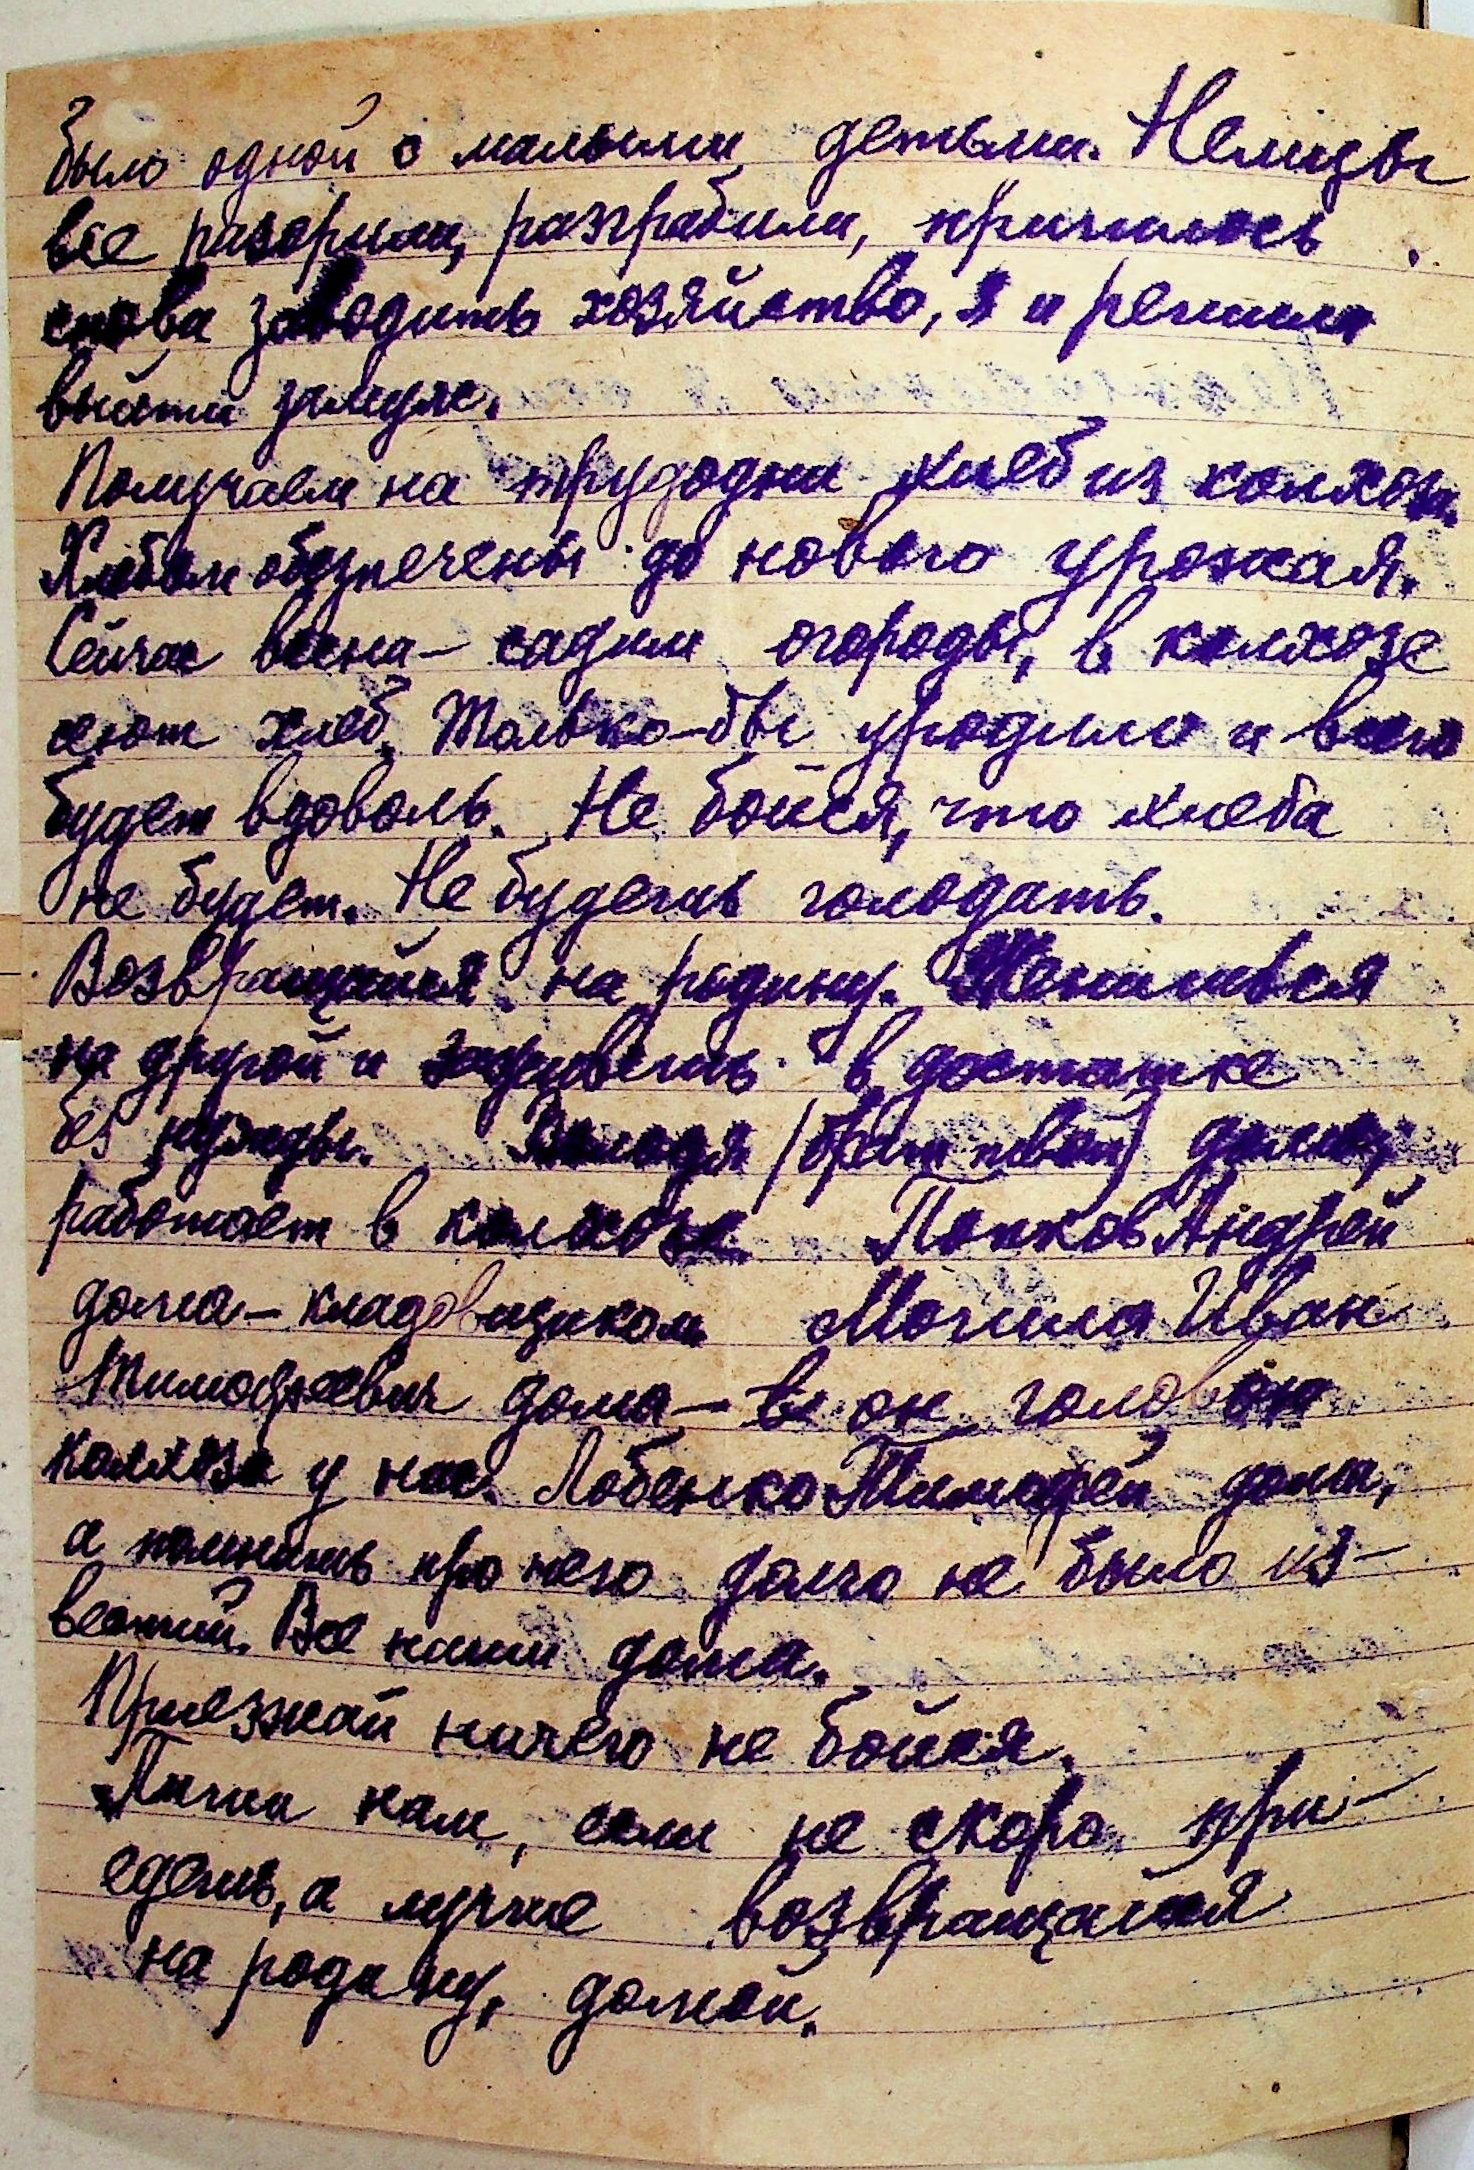 было одной с малыми детьми. Немцы
все разорили, разграбили, пришлось
снова заводить хозяйство, я и решила
выйти замуж.
Получаем на трудодни хлеб из колхоза.
Хлебом обезпечены до нового урожая.
Сейчас весна – садим огороды, в колхозе
сеют хлеб. Только-бы уродило и всего
будет вдоволь. Не бойся, что хлеба
не будет. Не будешь голодать.
Возвращайся на родину. Женишься
на другой и заживешь в достатке
без нужды. Володя (брат твой) дома,
работает в колхозе. Попков Андрей
дома – кладовщиком. Могила Иван
Тимофеевич дома – он головой
колхоза у нас. Лобенко Тимофей дома,
а помнишь про него долго не было из-
вестий. Все наши дома.
Приезжай ничего не бойся.
Пиши нам, если не скоро при-
едешь, а лучше возвращайся
на родину, домой.